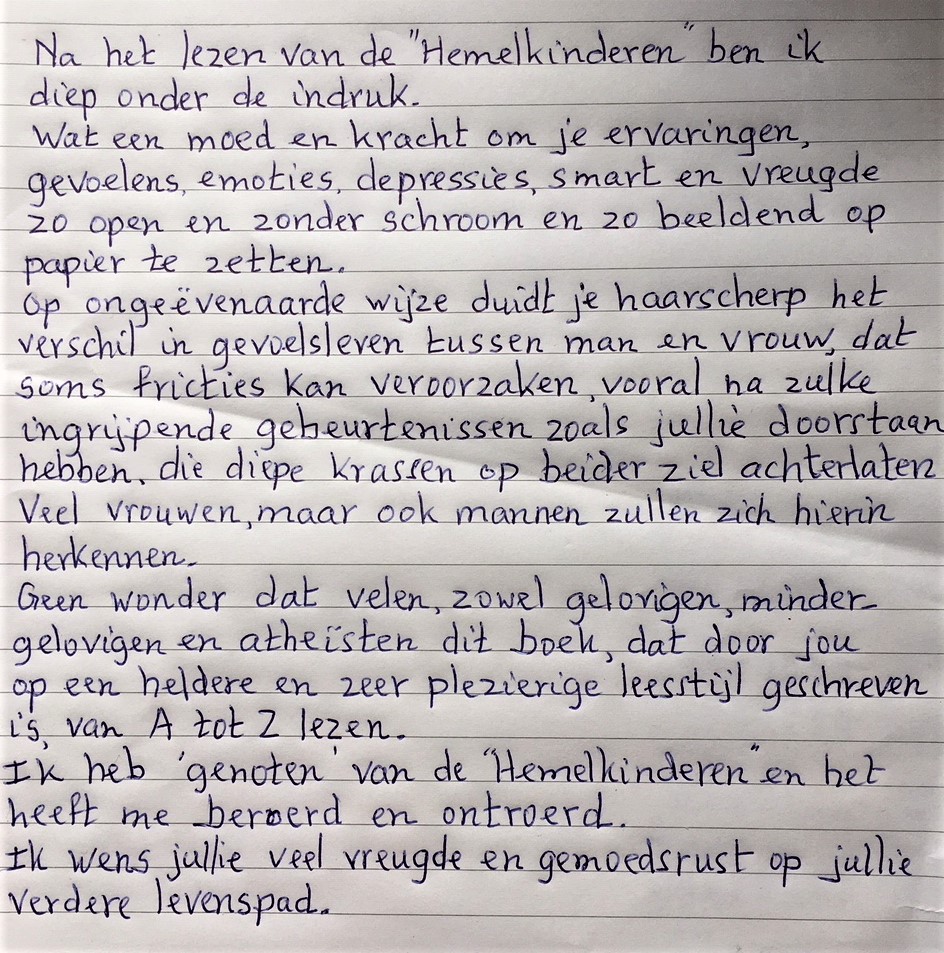 Na het lezen van de "Hemelkinderen" ben ik
diep onder de indruk.
Wat een moed en kracht om je ervaringen,
gevoelens, emoties, depressies, smart en vreugde
zo open en zonder schroom en zo beeldend op
papier te zetten.
Op ongeëvenaarde wijze duidt je haarscherp het
verschil in gevoelsleven tussen man en vrouw, dat
soms fricties kan veroorzaken, vooral na zulke
ingrijpende gebeurtenissen zoals jullie doorstaan
hebben, die diepe krassen op beider ziel achterlaten
Veel vrouwen, maar ook mannen zullen zich hierin
herkennen.
Geen wonder dat velen, zowel gelovigen, minder-
gelovigen en atheïsten dit boek, dat door jou
op een heldere en zeer plezierige leesstijl geschreven
is, van A tot Z lezen.
Ik heb 'genoten' van de "Hemelkinderen" en het
heeft me beroerd en ontroerd.
Ik wens jullie veel vreugde en gemoedsrust op jullie
verdere levenspad.